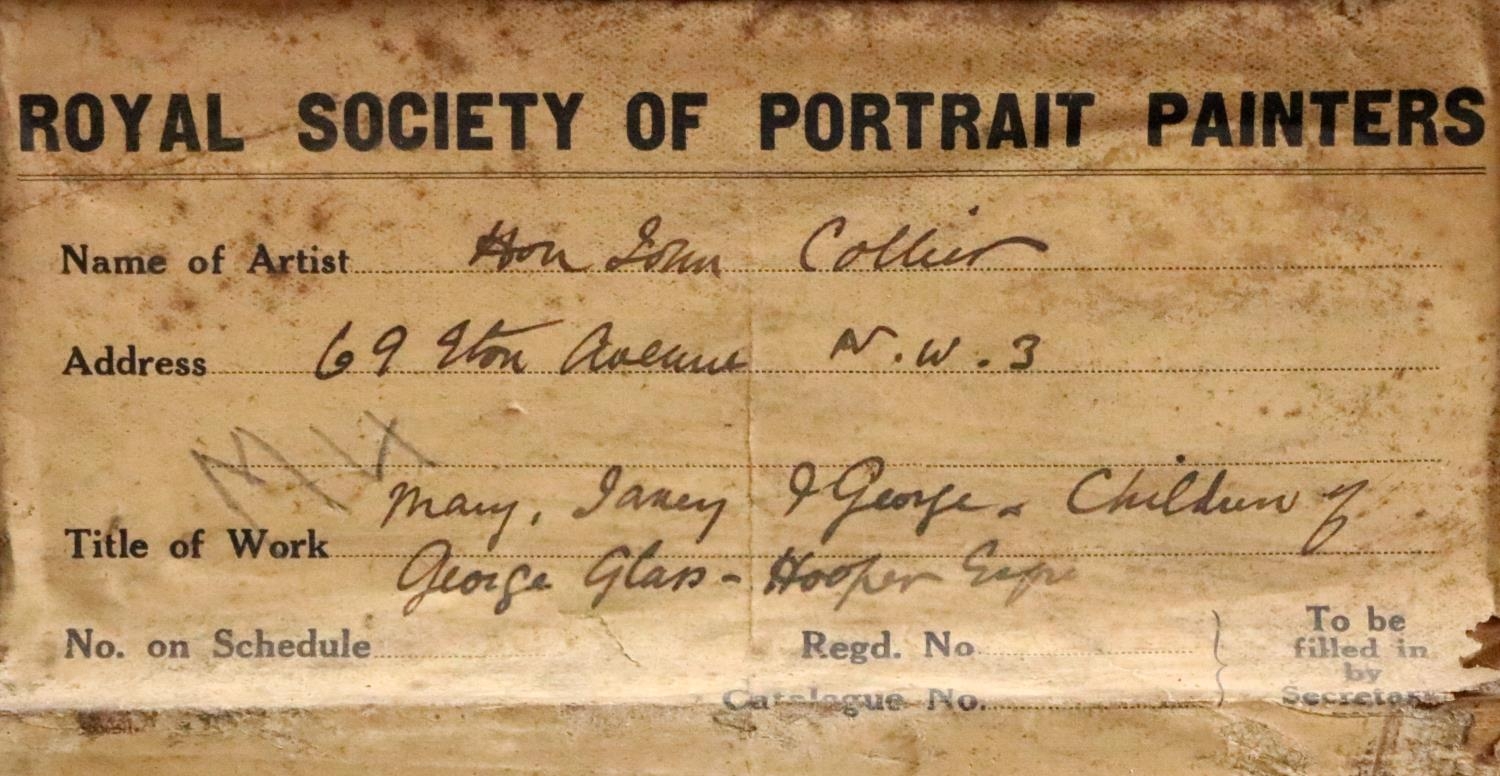 ROYAL SOCIETY OF PORTRAIT PAINTERS
Name of Artist Hon John Collier
Address 69 Eton Avenue N.W.3
Mary, Janey & George - Children of
Title of Work
George Glass-Hooper Esqre
No. on Schedule Regd. No.
To be
filled in
by
Secretary
Catalogue No.